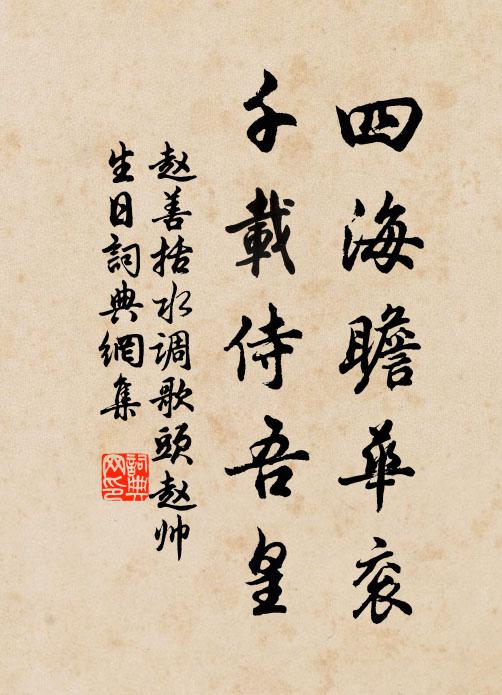 四海瞻華衮
千載侍吾皇
赵善括水调歌頭赵帅
生日詞典網集
詞典網印